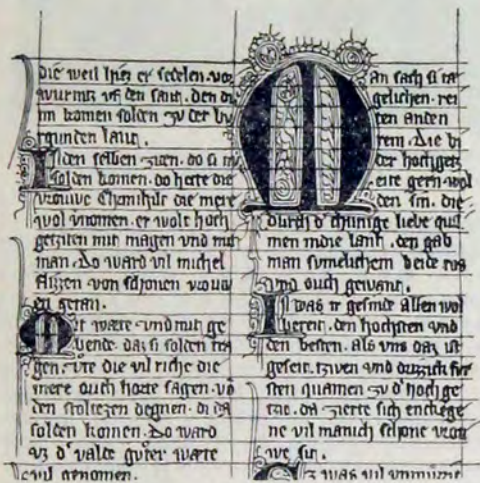 die weil hiez er sedelen. vor
wurmz vf den sant. den di
im komen solden zv der bv
rgunden lant.
In den selben ziten. do si nv
solden komen. do horte die
vrouwe Chrimhilt die mere
wol vnomen. er wolt hoch
getziten mit magen vnd mit
man. Do ward vil michel
flizzen von schonen vrouw
en getan.
Mit wæte vnd mit ge
bende. daz si solden tra
gen. vte die vil riche die
mere ouch horte sagen. vō
den stoltzen degnen. di da
solden komen. Do ward
vz d' valde guter wæte
vil genomen.
Man sach si tæ
gelichen. rei
ten anden
rein. die
der hochgetz
eite gern wol
den sin. die
durch d' chunige liebe qua
men indie lant. den gab
man svmelichem beide ros
vnd ouch gewant.
In was ir gesidle allen wol
bereit. den hochsten vnd
den besten. als vns daz ist
geseit. tzwen vnd drizzich fur
sten quamen zv d' hochge
tzite. da zierte sich enchege
ne vil manich schone vrou
we sin.
Ez was vil vnmuzic